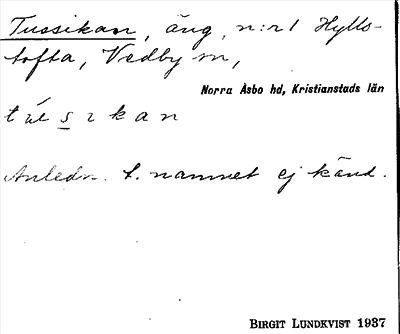 Tussikan, äng, n:r 1 Hylls-
tofta, Vedby sn,
Norra Åsbo hd, Kristianstads län
sikan
Anledn. t. namnet ej känd.
BIRGIT LUNDKVIST 1937